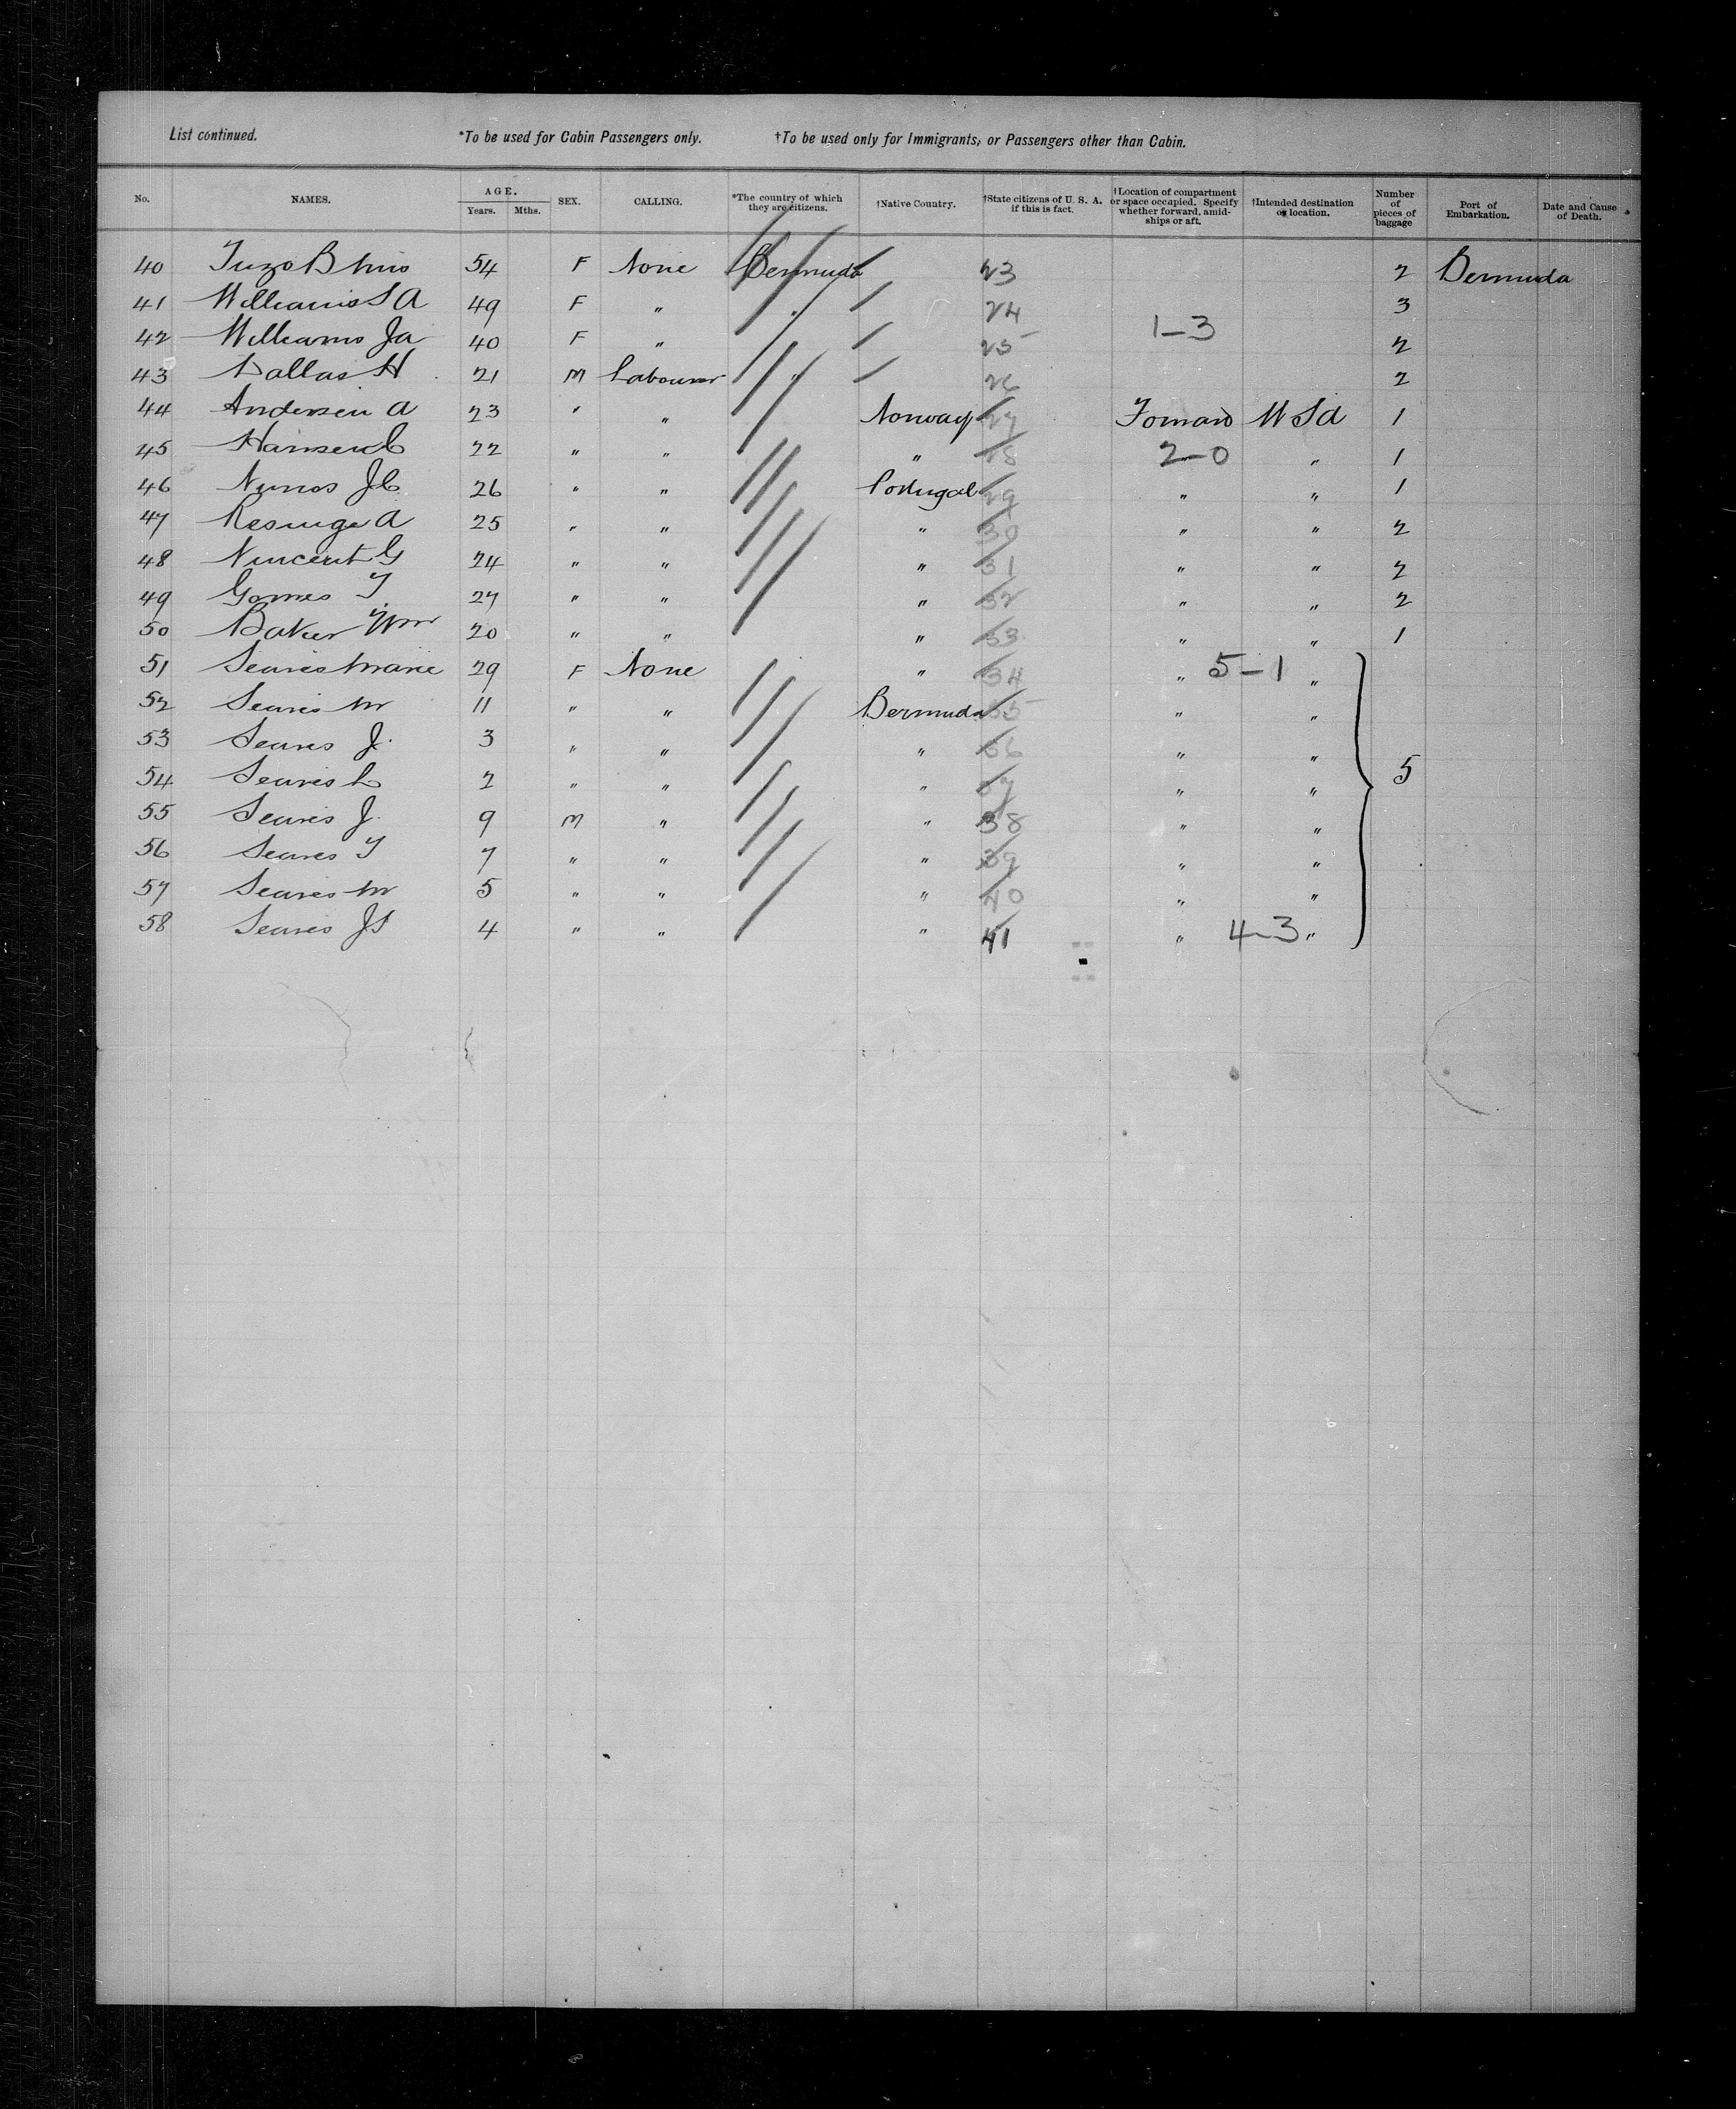 List continued. *To be used for Cabin Passengers only. †To be used only for Immigrants, or Passengers other than Cabin.
No. NAMES. AGE. Years. Mths. SEX. CALLING. *The country of which they are citizens. †Native Country. †State citizens of U. S. A. if this is fact. †Location of compartment or space occupied. Specify whether forward, amid-ships or aft. †Intended destination or location. Number of pieces of baggage Port of Embarkation. Date and Cause of Death.
40 Tuzo B Miss 54 F None Bermuda 23 2 Bermuda
41 Williams S A 49 F " " 24 3
1-3
42 Williams Ja 40 F " 25 2
43 Dallas H 21 M Labourer " 26 2
44 Andersen A 23 " " Norway 27 Forward U S A 1
45 Hansen C 22 " " " 28 2-0 " 1
46 Nunos J C 26 " " Portugal 29 " " 1
47 A 25 " " " 30 " " 2
48 Vincent G 24 " " " 31 " " 2
49 Gomes T 27 " " " 32 " " 2
50 Baker Wm 20 " " " 33 " " 1
51 Seares Marie 29 F None " 34 " 5-1 "
52 Seares M 11 " " Bermuda 35 " "
53 Seares J. 3 " " " 36 " "
54 Seares L 2 " " " 37 " " 5
55 Seares J. 9 M " " 38 " "
56 Seares T 7 " " " 39 " "
57 Seares M 5 " " " 40 " "
58 Seares J S 4 " " " 41 " 4-3 "